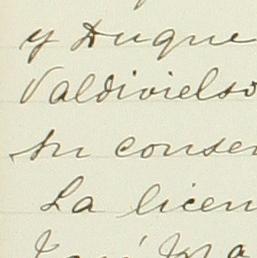 y Duque
Valdivielso
su conse
La licen
José Ma